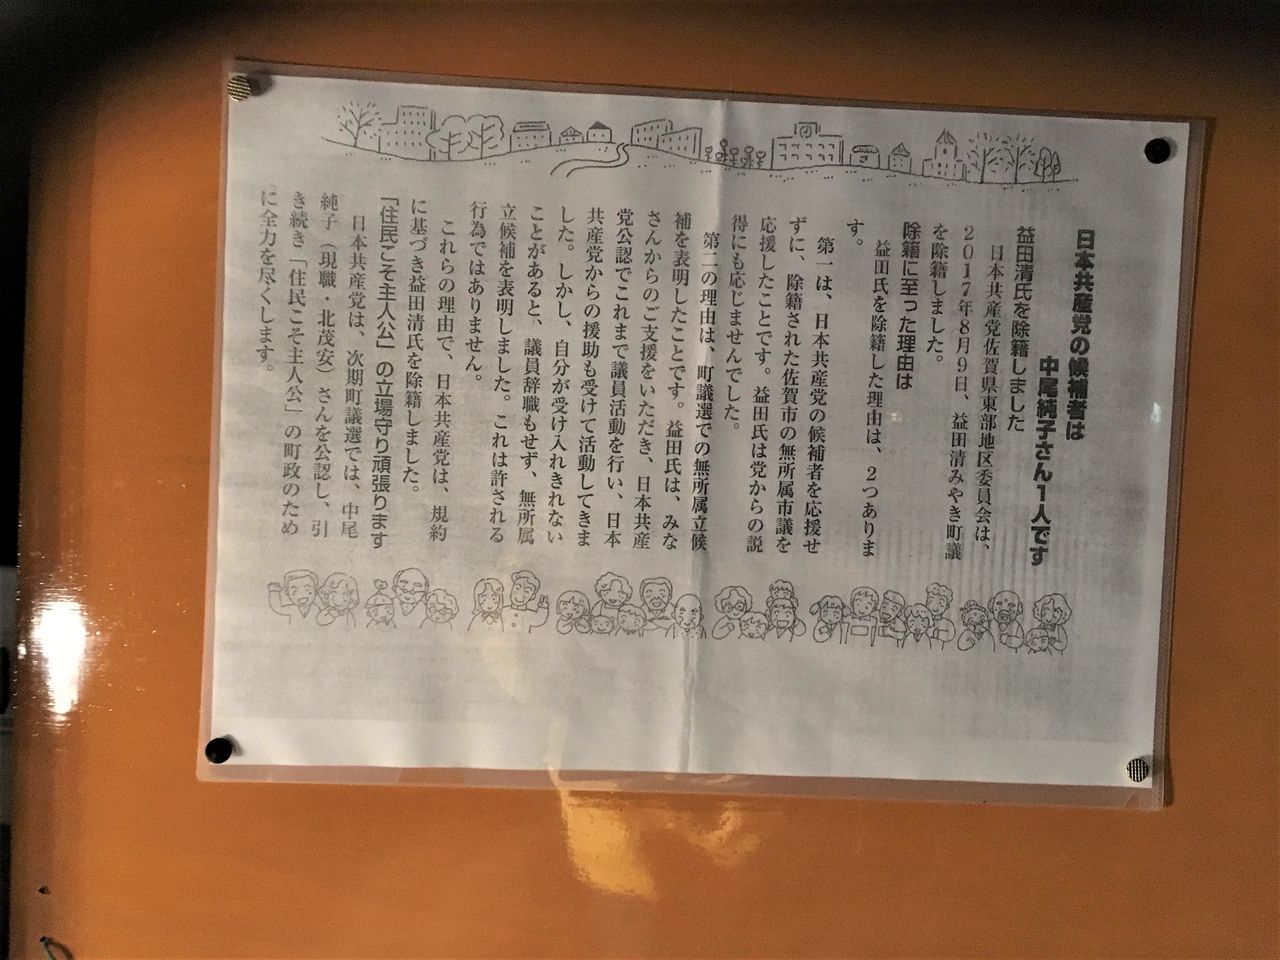 日本共産党の候補者は
中尾純子さん１人です
益田清氏を除籍しました
日本共産党佐賀県東部地区委員会は、
２０１７年８月９日、益田清みやき町議
を除籍しました。
除籍に至った理由は
益田氏を除籍した理由は、２つありま
す。
第一は、日本共産党の候補者を応援せ
ずに、除籍された佐賀市の無所属市議を
応援したことです。益田氏は党からの説
得にも応じませんでした。
第二の理由は、町議選での無所属立候
補を表明したことです。益田氏は、みな
さんからのご支援をいただき、日本共産
党公認でこれまで議員活動を行い、日本
共産党からの援助も受けて活動してきま
した。しかし、自分が受け入れきれない
ことがあると、議員辞職もせず、無所属
立候補を表明しました。これは許される
行為ではありません。
これらの理由で、日本共産党は、規約
に基づき益田清氏を除籍しました。
「住民こそ主人公」の立場守り頑張ります
日本共産党は、次期町議選では、中尾
純子（現職・北茂安）さんを公認し、引
き続き「住民こそ主人公」の町政のため
に全力を尽くします。